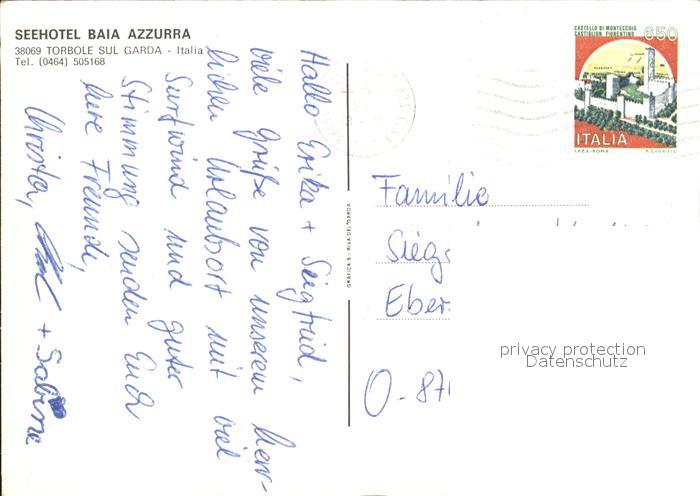 SEEHOTEL BAIA AZZURRA
38069 TORBOLE SUL GARDA - Italia
Tel. (0464) 505168
Hallo Erika + Siegfried,
viele Grüße von unserem herr-
lichen Urlaubsort mit viel
Surfwind und guter
Stimmung senden Euch
Eure Freunde,
Christa, + Sabine
GRAFICA 5 - RIVA DEL GARDA
CASTELLO DI MONTECCHIO
CASTIGLION FIORENTINO
650
ITALIA
I.P.Z.S.-ROMA
Familie
Sieg
Eber
O-871
privacy protection
Datenschutz